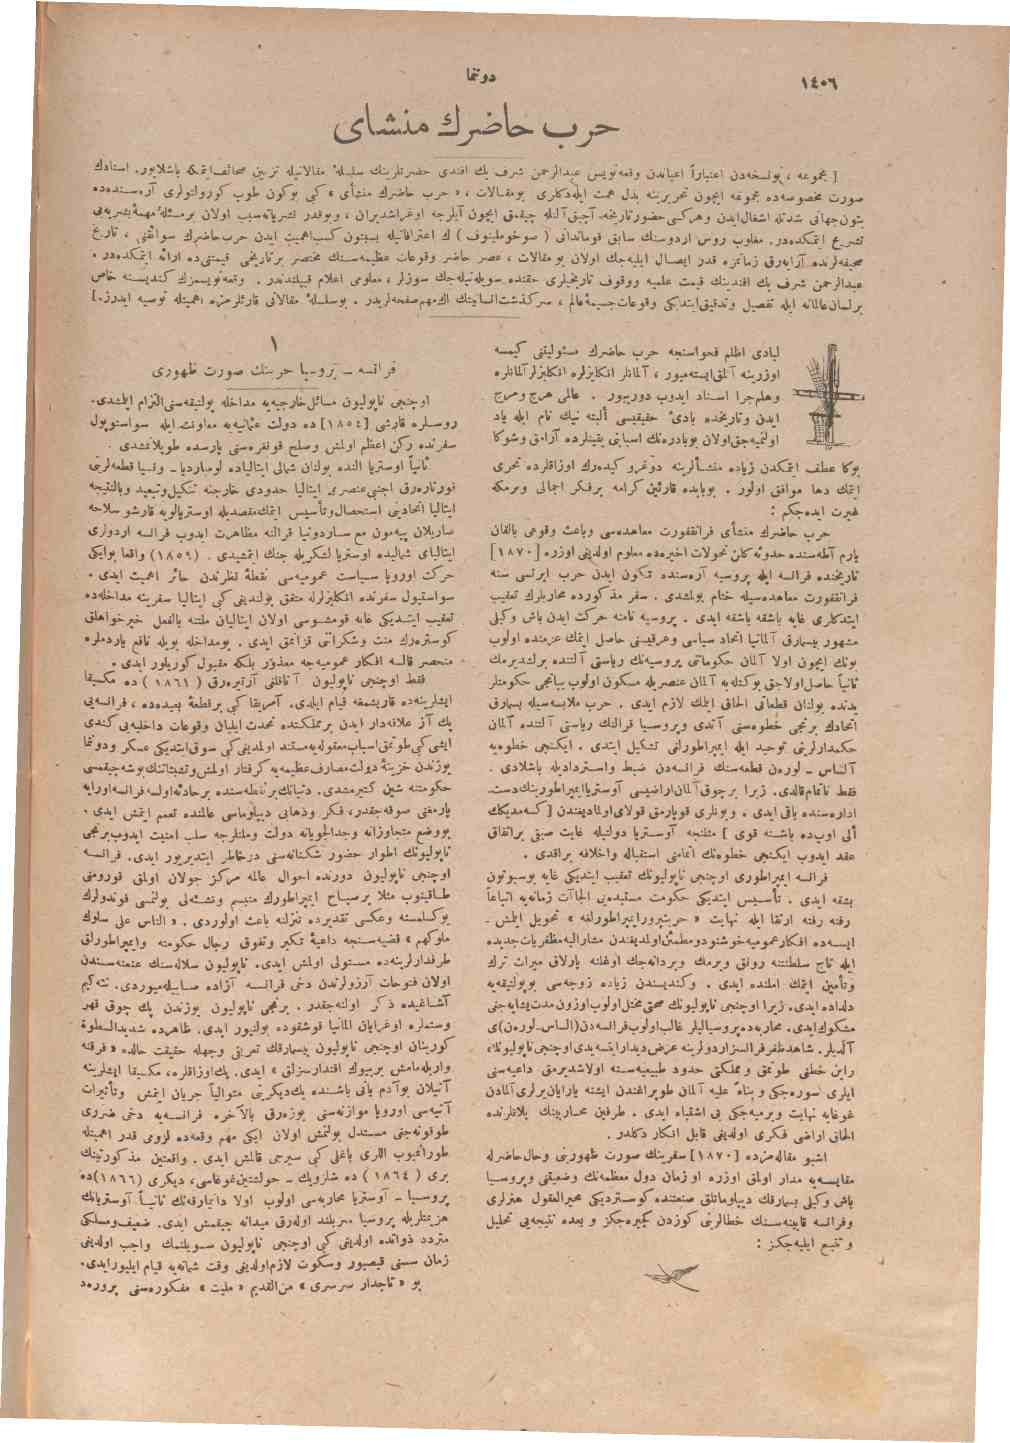 ١٤٠٦
دوننما
حرب حاضرك منشاى
[ مجموعه ، بونسخه‌دن اعتباراً اعياندن وقعه‌نويس عبدالرحمن شرف بك افندى حضرتلرينك سلسلهٔ مقالاتيله تزيين صحائف‌ايتمكه باشلايور. استادك
صورت مخصوصه‌ده مجموعه ايچون تحريرينه بذل همت ايله‌دكلرى بومقالات ، « حرب حاضرك منشأى » كبى بوكون طوب كورولتولرى آره‌سنده‌ده
بتون‌جهانى شدتله اشغال‌ايدن وهركسى‌حضورتاريخه آچيق‌آلنله چيقمق ايچون آيلرجه اوغراشديران ، وبوقدر نشرياته‌سبب اولان برمسئلهٔ‌مهمهٔ‌بشريه‌يى
تشريح ايتمكده‌در. مغلوب روس اردوسنك سابق قوماندانى ( سوخوملينوف ) ك اعترافاتيله بسبتون كسب‌اهميت ايدن حرب‌حاضرك سوائقنى ، تاريخ
صحيفه‌لرنده آرايه‌رق زمانمزه قدر ايصال ايليه‌جك اولان بو مقالات ، عصر حاضر وقوعات عظيمه‌سنك مختصر برتاريخى قيمتنى‌ده ارائه ايتمكده‌در .
عبدالرحمن شرف بك افندينك قيمت علميه ووقوف تاريخيلرى حقنده سويله‌نيله‌جك سوزلر ، معلومى اعلام قبيلندندر . وقعه‌نويسمزك كنديسنه خاص
برلسان‌عالمانه ايله تفصيل وتدقيق‌ايتديكى وقوعات‌جسيمهٔ‌عالم ، سركذشت‌انسانيتك اك‌مهم‌صفحه‌لريدر . بوسلسلهٔ مقالاتى قارئلرمزه اهميتله توصيه ايدرز.]
لبادى اظلم فحواسنجه حرب حاضرك مسئوليتنى كيمسه
اوزرينه آلمق‌ايسته‌ميور ، آلمانلر انكليزلره انكليزلرآلمانلره
وهلم‌جرا اسناد ايدوب دوريور . عالمى هرج ومرج
ايدن وتاريخده بادئ حقيقيسى ألبته نيك نام ايله ياد
اولنميه‌جق‌اولان بوبادره‌نك اسبابنى يقينلرده آرامق وشوكا
بوكا عطف ايتمكدن زياده منشألرينه دوغرو كيده‌رك اوزاقلرده تحرى
ايتمك دها موافق اولور . بوبابده قارئين كرامه برفكر اجمالى ويرمكه
غيرت ايده‌جكم :
حرب حاضرك منشأى فرانقفورت معاهده‌سى وباعث وقوعى بالقان
يارم آطه‌سنده حدوثه‌كلن تحولات اخيره‌ده معلوم اولديغى اوزره [١٨٧٠]
تاريخنده فرانسه ايله پروسيه آره‌سنده تكون ايدن حرب ايرتسى سنه
فرانقفورت معاهده‌سيله ختام بولمشدى . سفر مذكورده محاربلرك تعقيب
ايتدكلرى غايه باشقه باشقه ايدى . پروسيه نامنه حركت ايدن باش وكيلى
مشهور بيسمارق آلمانيا اتحاد سياسى وعرقيسنى حاصل ايتمك عزمنده اولوب
بونك ايچون اولا آلمان حكوماتنى پروسيه‌نك رياستى آلتنده برلشديرمك
ثانياً حاصل‌اولاجق بوكتله‌يه آلمان عنصريله مسكون اولوب بيانجى حكومتلر
يدنده بولنان قطعاتى الحاق ايتمك لازم ايدى . حرب ملابسه‌سيله بسمارق
اتحادك برنجى خطوه‌سنى آتدى وپروسيا قرالنك رياستى آلتنده آلمان
حكمدارلرينى توحيد ايله ايمپراطورلغى تشكيل ايتدى . ايكنجى خطوه‌يه
آلساس - لوره‌ن قطعه‌سنك فرانسه‌دن ضبط واسترداديله باشلادى .
فقط ناتمام‌قالدى. زيرا برچوق‌آلمان‌اراضيسى آوسترياايمپراطورينك‌دست
اداره‌سنده باقى ايدى . وبونلرى قوپارمق قولاى‌اولماديغندن [ كسه‌مديكك
ألى اوپ‌ده باشنه قوى ] مثلنجه آوستريا دولتيله غايت صيقى براتفاق
عقد ايدوب ايكنجى خطوه‌نك اتمامنى استقباله واخلافه براقدى .
فرانسه ايمپراطورى اوچنجى ناپوليونك تعقيب ايتديكى غايه بوسبوتون
بشقه ايدى . تأسيس ايتديكى حكومت مستبده‌يى الجاآت زمانه‌يه اتباعاً
رفته رفته ارتقا ايله نهايت « حريتپرورايمپراطورلغه » تحويل ايلمش
ايسه‌ده افكارعموميه‌خوشنودومطمئن‌اولمديغندن مشاراليه‌مظفريات‌جديده
ايله تاج سلطنتنه رونق ويرمك وبردانه‌جك اوغلنه پارلاق ميراث ترك
وتأمين ايتمك املنده ايدى . وكنديسندن زياده زوجه‌سى بوپولتيقه‌يه
دلداده ايدى. زيرا اوچنجى ناپوليونك صحتى مختل اولوب‌اوزون‌مدت‌يشايه‌جغى
مشكوك‌ايدى. محاربه‌ده‌پروسياليلر غالب‌اولوب‌فرانسه‌دن(الساس-لوره‌ن)ى
آلديلر. شاهدظفرفرانسزاردولرينه عرض‌ديدارايتسه‌يدى‌اوچنجى‌ناپوليونك،
راين خطنى طوتمق ومملكتى حدود طبيعيه‌سنه اولاشديرمق داعيه‌سنى
ايلرى سوره‌جكى و بناءً عليه آلمان طوپراغندن ايشنه يارايان‌يرلرى‌آلمادن
غوغايه نهايت ويرميه‌جكى بى اشتباه ايدى . طرفين محاربينك پلانلرنده
الحاق اراضى فكرى اولديغى قابل انكار دكلدر .
اشبو مقاله‌مزده [١٨٧٠] سفرينك صورت ظهورينى وحال‌حاضرله
مقايسه‌يه مدار اولمق اوزره اوزمان دول معظمه‌نك وضعيتنى وپروسيا
باش وكيلى بسمارقك ديپلوماتلق صنعتنده كوستردیكى محيرالعقول هنرلرى
وفرانسه قابينه‌سنك خطالرينى كوزدن كچيره‌جكز و بعده نتيجه‌يى تحليل
و تتبع ايليه‌جكز :
١
فرانسه - پروسيا حربنك صورت ظهورى
اوچنجى ناپوليون مسائل‌خارجيه‌يه مداخله پولتيقه‌سنى‌التزام ايلمشدى.
روسلره قارشى [١٨٥٤] ده دولت عثمانيه‌يه معاونت ايله سواستوپول
سفرنده ركن اعظم اولمش وصلح قونفره‌سنى پارسده طوپلاتمشدى .
ثانياً اوستريا النده بولنان شمالى ايتالياده لومبارديا- ونسيا قطعه‌لرينى
قورتاره‌رق اجنبى‌عنصرى ايتاليا حدودى خارجنه تنكيل‌وتبعيد وبالنتيجه
ايتاليا اتحادينى استحصال‌وتأسيس ايتمك‌مقصديله اوسترياليويه قارشو سلاحه
صاريلان پيه‌مون مع ساردونيا قرالنه مظاهرت ايدوب فرانسه اردولرى
ايتالياى شماليده اوستريا لشكريله جنك ايتمشيدى . (١٨٥٩) واقعا بوايكى
حركت اوروپا سياست عموميه‌سى نقطهٔ نظرندن حائز اهميت ايدى .
سواستپول سفرنده انكليزلرله متفق بولنديغى كبى ايتاليا سفرينه مداخله‌ده
تعقيب ايتديكى غايه قومشوسى اولان ايتاليان ملتنه بالفعل خيرخواهلق
كوستره‌رك منت وشكرانى قزانمق ايدى . بومداخله بويله نافع ياردملره
منحصر قالسه افكار عموميه‌جه معذور بلكه مقبول كوريلور ايدى .
فقط اوچنجى ناپوليون آتاقلغى آرتيره‌رق (١٨٦١) ده مكسيقا
ايشلرينه‌ده قاريشمغه قيام ايلدى. آمريقا كبى برقطعهٔ بعيده‌ده ، فرانسه‌يى
پك آز علاقه‌دار ايدن برمملكتده تحدث ايليان وقوعات داخليه‌يى كندى
ايشى كبى طوتمق‌اسباب‌معقوله‌يه‌مستند اولمديغى كبى سوق‌ايتديكى عسكر ودوننما
يوزندن خزينهٔ دولت‌مصارف‌عظيمه‌يه كرفتار اولمش‌وتشبثاتنك‌بوشه‌چيقمسى
حكومتنه شين كتيرمشدى. دنيانك‌برنقطه‌سنده برحادثه‌اولسه‌فرانسه‌اورايه
پارمغنى صوقه‌جقدر، فكر وذهابى ديپلوماسى عالمنده تعمم ايتمش ايدى .
بووضع متجاوزانه وجدالجويانه دولت وملتلرجه سلب امنيت ايدوب‌برنجى
ناپوليونك اطوار حضور شكنانه‌سنى درخاطر ايتديريور ايدى. فرانسه
اوچنجى ناپوليون دورنده احوال عالمه مركز جولان اولمق قورومنى
طاقينوب مثلا برصباح ايمپراطورك متبسم ونشئه‌لى بولنمسى فوندولرك
يوكسلمسنه وعكسى تقديرده تنزلنه باعث اولوردى . « الناس على سلوك
ملوكهم » قضيه‌سنجه داعيهٔ تكبر وتفوق رجال حكومته وايمپراطورلق
طرفدارلرينه‌ده مستولى اولمش ايدى. ناپوليون سلاله‌سنك عنعنه‌سندن
اولان فتوحات آرزولرندن دخى فرانسه آزاده صاييله‌ميوردى. نته‌كيم
آشاغيده ذكر اولنه‌جقدر. برنجى ناپوليون يوزندن پك چوق قهر
وستملره اوغرايان المانيا قوشقوده بولنيور ايدى. ظاهرده شديدالسطوة
كورينان اوچنجى ناپوليون بيسمارقك تعريفى وجهله حقيقت حالده « فرقنه
واريله‌مامش بربيوك اقتدارسزلق » ايدى. پك‌اوزاقلره، مكسيقا ايشلرينه
آتيلان بوآدم يانى باشنده يك‌ديكرينى متوالياً جريان ايتمش وتأثيرات
آتيه‌سى اوروپا موازنه‌سنى بوزه‌رق بالآخره فرانسه‌يه دخى ضررى
طوقونه‌جغى مستدل بولنمش اولان ايكى مهم وقعه‌ده لزومى قدر اهميتله
طورانميوب اللرى باغلى كبى سيرجى قالمش ايدى . واقعتين مذكورتينك
برى (١٨٦٤) ده شلزويك - حولشتين‌غوغاسى، ديكرى (١٨٦٦)ده
پروسيا - آوستريا محاربه‌سى اولوب اولا دانيمارقه‌نك ثانياً آوستريانك
هزيمتلريله پروسيا سربلند اوله‌رق ميدانه چيقمش ايدى. ضعيف‌ومسلكى
متردد ذواتده اولديغى كبى اوچنجى ناپوليون سويلنمك واجب اولديغى
زمان سسنى قيصيور وسكوت لازم‌اولديغى وقت شماته‌يه قيام ايليورايدى.
بو « تاجدار سرسرى » من‌القديم « مليت » مفكوره‌سنى پرورده